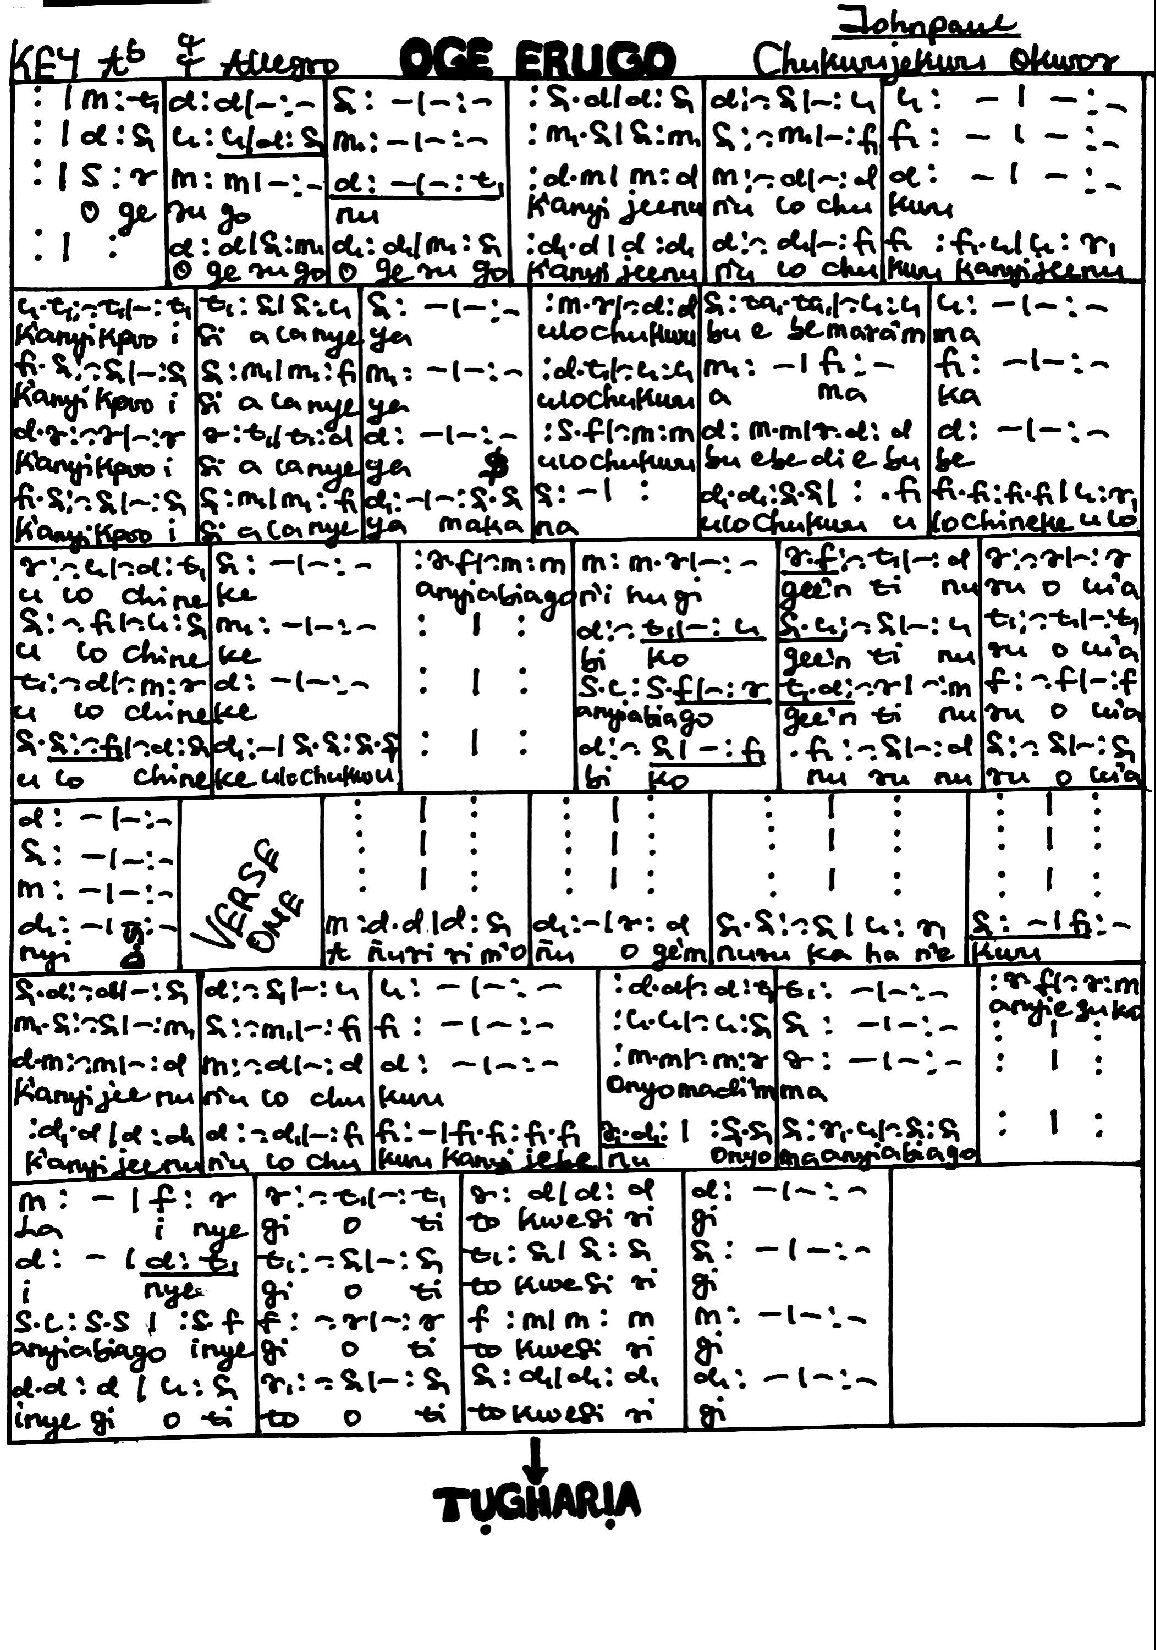 Johnpaul
KEY Ab 4/4 Allegro OGE ERUGO Chukwujekwu Okwor
: | m:-t₁ d:d|-:- s₁: -|-:- :s₁.d|d:s₁ d:-.s₁|-:l₁ l₁: - | - :-
: | d:s₁ l₁:l₁|d:s₁ m₁: -|-:- :m₁.s₁|s₁:m₁ s₁:-.m₁|-:f₁ f₁: - | - :-
: | s:r m:m|-:- d: -|-:t₁ :d.m|m:d m:-.d|-:d d: - | - :-
O ge ru go nu Kanyi jeenu n'u lo chu kwu
: | : d:d|s₁:m₁ d₁:d₁|m₁:s₁ :d₁.d|d:d₁ d:-.d₁|-:f₁ f₁ :f₁.l₁|l₁:r₁
O ge ru go O ge ru go Kanyi jeenu n'u lo chu kwu Kanyi jeenu
l₁.t₁:-.t₁|-:t₁ t₁:s₁|s₁:l₁ s₁: -|-:- :m.r|-.d:d s₁:ta₁.ta₁|-.l₁:l₁ l₁: -|-:-
Kanyi kpoo i si a la nye ya ulochukwu bu e be mara'm ma
f₁.s₁:-.s₁|-:s₁ s₁:m₁|m₁:f₁ m₁: -|-:- :d.t₁|-.l₁:l₁ m₁: -|f₁:- f₁: -|-:-
Kanyi kpoo i si a la nye ya ulochukwu a ma ka
d.r:-.r|-:r r:t₁|t₁:d d: -|-:- :s.f|-.m:m d:m.m|r.d:d d: -|-:-
Kanyi kpoo i si a la nye ya ulochukwu bu ebe di e bu be
f₁.s₁:-.s₁|-:s₁ s₁:m₁|m₁:f₁ d₁:-|-:s.s s₁: -| : d₁.d₁:s₁.s₁| : .f₁ f₁.f₁:f₁.f₁|l₁:r₁
Kanyi kpoo i si a la nye ya maka na ulochukwu u lochineke u lo
r:-.l₁|-.d:t₁ s₁: -|-:- :r.f|-.m:m m:m.r|-:- r.f:-.t₁|-:d r:-.r|-:r
u lo chine ke anyiabiago n'i hu gi gee'n ti nu ru o lu'a
s₁:-.f₁|-.l₁:s₁ m₁: -|-:- : | : d:-.t₁|-:l₁ s₁.l₁:-.s₁|-:l₁ t₁:-.t₁|-:t₁
u lo chine ke bi ko gee'n ti nu ru o lu'a
t₁:-.d|-.m:r d: -|-:- : | : s.l:s.f|-:r t₁.d:-.r|-:m f:-.f|-:f
u lo chine ke anyiabiago gee'n ti nu ru o lu'a
s₁.s₁:-.f₁|-.d:s₁ d₁:-|s.s:s.f : | : d:-.s₁|-:f₁ .f₁:-.s₁|-:d s₁:-.s₁|-:s₁
u lo chine ke ulochukwu bi ko nu ru nu ru o lu'a
d: -|-:- : | : : | : : | : : | :
s₁: -|-:- VERSE : | : : | : : | : : | :
m: -|-:- ONE : | : : | : : | : : | :
d₁: -|-:- m:d.d|d:s₁ d₁:-|r:d s₁.s₁:-.s₁|l₁:r s₁: -|f₁:-
nyi A ñuri ri m'o ñu o ge'm nuru ka ha n'e kwu
s₁.d:-.d|-:s₁ d:-.s₁|-:l₁ l₁: -|-:- :d.d|-.d:t₁ t₁: -|-:- :r.f|-.r:m
anyiezuko
m₁.s₁:-.s₁|-:m₁ s₁:-.m₁|-:f₁ f₁: -|-:- :l₁.l₁|-.l₁:s₁ s₁: -|-:- : | :
d.m:-.m|-:d m:-.d|-:d d: -|-:- :m.m|-.m:r r: -|-:- : | :
Kanyi jee nu n'u lo chu kwu Onyomadi'm ma
:d₁.d|d:d₁ d:-.d₁|-:f₁ f₁:-|f₁.f₁:f₁.f₁ r₁.d₁: | :s₁.s₁ s₁:r₁.l₁|-.s₁:s₁ : | :
Kanyi jeenu n'u lo chu kwu Kanyi jebe nu Onyo maanyiabiago
m: -|f:r r:-.t₁|-:t₁ r:d|d:d d: -|-:-
La i nye gi o ti to kwesi ri gi
d: -|d:t₁ t₁:-.s₁|-:s₁ t₁:s₁|s₁:s₁ s₁: -|-:-
i nye gi o ti to kwesi ri gi
s.l:s.s| :s.f f:-.r|-:r f:m|m:m m: -|-:-
anyiabiago inye gi o ti to kwesi ri gi
d.d:d|l₁:s₁ r₁:-.s₁|-:s₁ s₁:d₁|d₁:d₁ d₁: -|-:-
inye gi o ti to o ti to kwesi ri gi
TỤGHARỊA